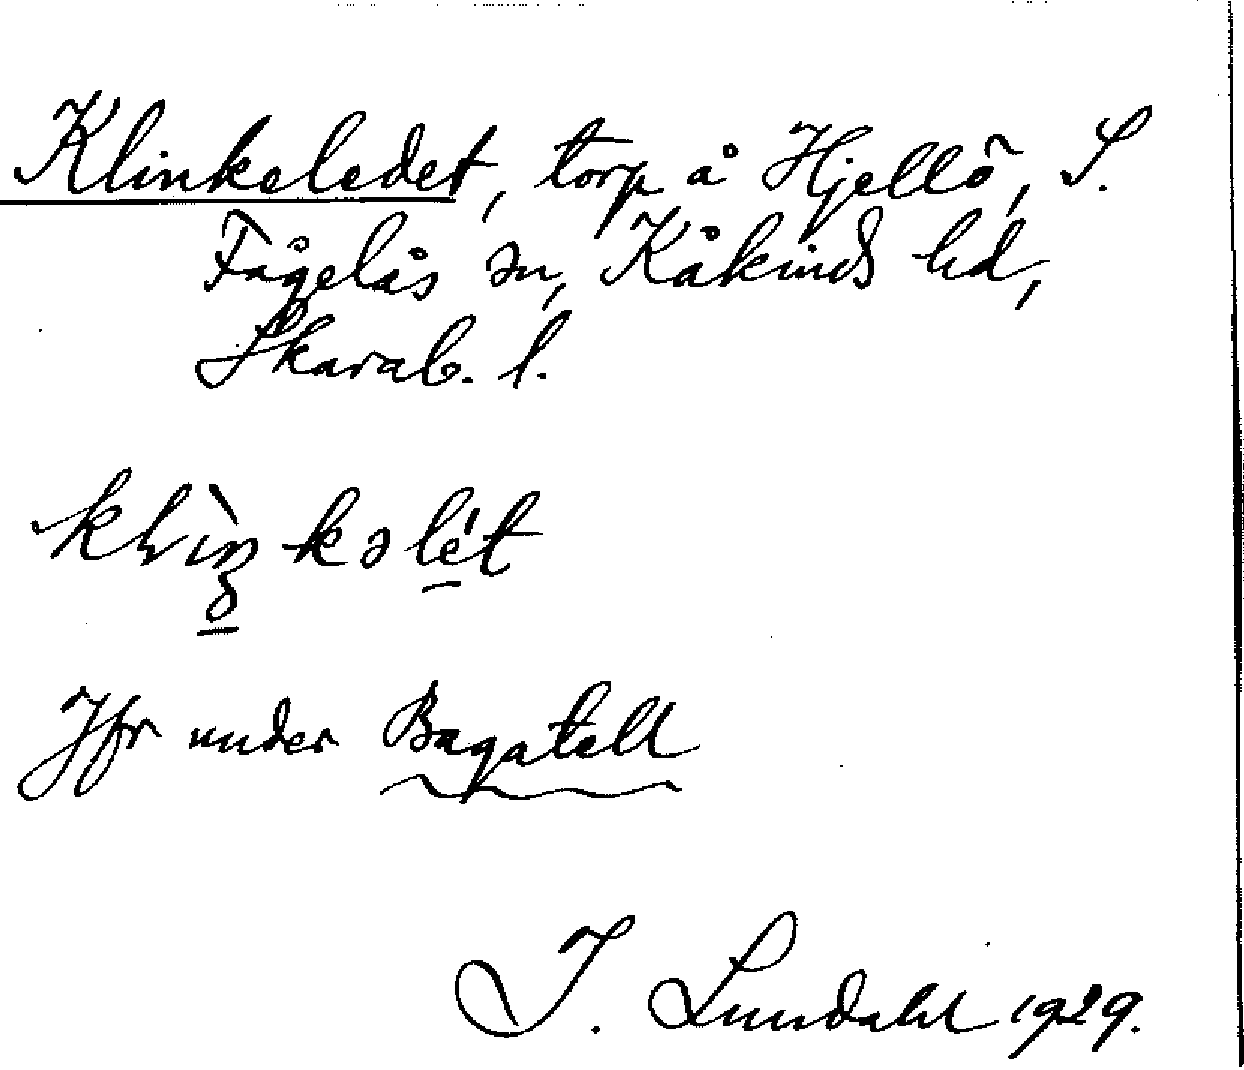 Klinkeledet, torp å Hjellö, S.
Fågelås sn, Kåkinds hd,
Skarab. l.
Jfr under Bagatell
I. Lundahl 1929.